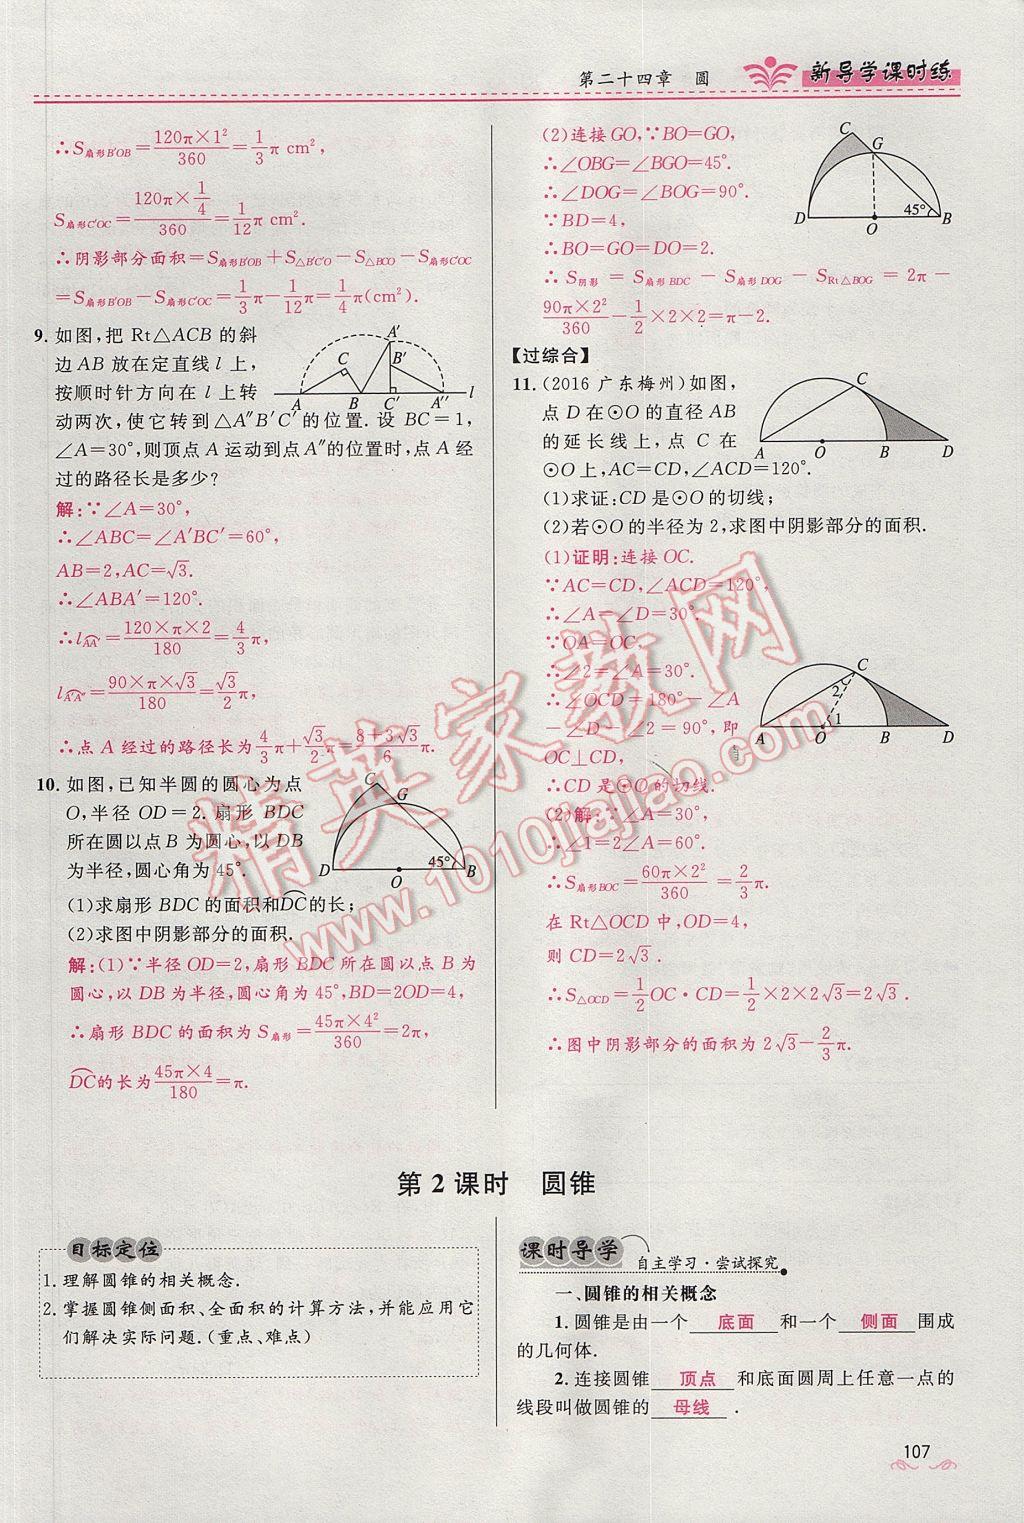 第二十四章 圆
新导学课时练
∴S扇形B′OB=120π×1²/360=1/3π cm²,
S扇形C′OC=120π×1/4/360=1/12π cm².
∴阴影部分面积=S扇形B′OB+S△B′C′O-S△BCO-S扇形C′OC
=S扇形B′OB-S扇形C′OC=1/3π-1/12π=1/4π(cm²).
9. 如图,把 Rt△ACB 的斜
边 AB 放在定直线 l 上,
按顺时针方向在 l 上转
动两次,使它转到△A″B′C′的位置. 设 BC=1,
∠A=30°,则顶点 A 运动到点 A″的位置时,点 A 经
过的路径长是多少?
A B C A′ B′ C′ A″ l
解:∵∠A=30°,
∴∠ABC=∠A′BC′=60°,
AB=2,AC=√3.
∴∠ABA′=120°.
∴l⌒AA′=120×π×2/180=4/3π,
l⌒A′A″=90×π×√3/180=√3/2π,
∴点 A 经过的路径长为4/3π+√3/2π=8+3√3/6π.
10. 如图,已知半圆的圆心为点
O,半径 OD=2. 扇形 BDC
所在圆以点 B 为圆心,以 DB
为半径,圆心角为 45°.
C G D O B 45°
(1)求扇形 BDC 的面积和⌒DC的长;
(2)求图中阴影部分的面积.
解:(1)∵半径 OD=2,扇形 BDC 所在圆以点 B 为
圆心,以 DB 为半径,圆心角为 45°,BD=2OD=4,
∴扇形 BDC 的面积为 S扇形=45π×4²/360=2π,
⌒DC的长为45π×4/180=π.
(2)连接 GO,∵BO=GO,
∴∠OBG=∠BGO=45°.
∴∠DOG=∠BOG=90°.
∵BD=4,
∴BO=GO=DO=2.
∴S阴影=S扇形BDC-S扇形DOG-SRt△BOG=2π-
90π×2²/360-1/2×2×2=π-2.
C G D O B 45°
【过综合】
11. (2016 广东梅州)如图,
点 D 在⊙O 的直径 AB
的延长线上,点 C 在
⊙O 上,AC=CD,∠ACD=120°.
A O B D C
(1)求证:CD 是⊙O 的切线;
(2)若⊙O 的半径为 2,求图中阴影部分的面积.
(1)证明:连接 OC.
∵AC=CD,∠ACD=120°,
∴∠A=∠D=30°.
∵OA=OC,
∴∠2=∠A=30°.
∴∠OCD=180°-∠A
-∠D-∠2=90°,即
OC⊥CD,
∴CD 是⊙O 的切线.
A O B D C 1 2
(2)解:∵∠A=30°,
∴∠1=2∠A=60°.
∴S扇形BOC=60π×2²/360=2/3π.
在 Rt△OCD 中,OD=4,
则 CD=2√3.
∴S△OCD=1/2OC·CD=1/2×2×2√3=2√3.
∴图中阴影部分的面积为 2√3-2/3π.
第 2 课时 圆锥
目标定位
1. 理解圆锥的相关概念.
2. 掌握圆锥侧面积、全面积的计算方法,并能应用它
们解决实际问题.(重点、难点)
课时导学 自主学习·尝试探究
一、圆锥的相关概念
1. 圆锥是由一个 底面 和一个 侧面 围成
的几何体.
2. 连接圆锥 顶点 和底面圆周上任意一点的
线段叫做圆锥的 母线 .
107
精英家教网
www.1010jiajiao.com